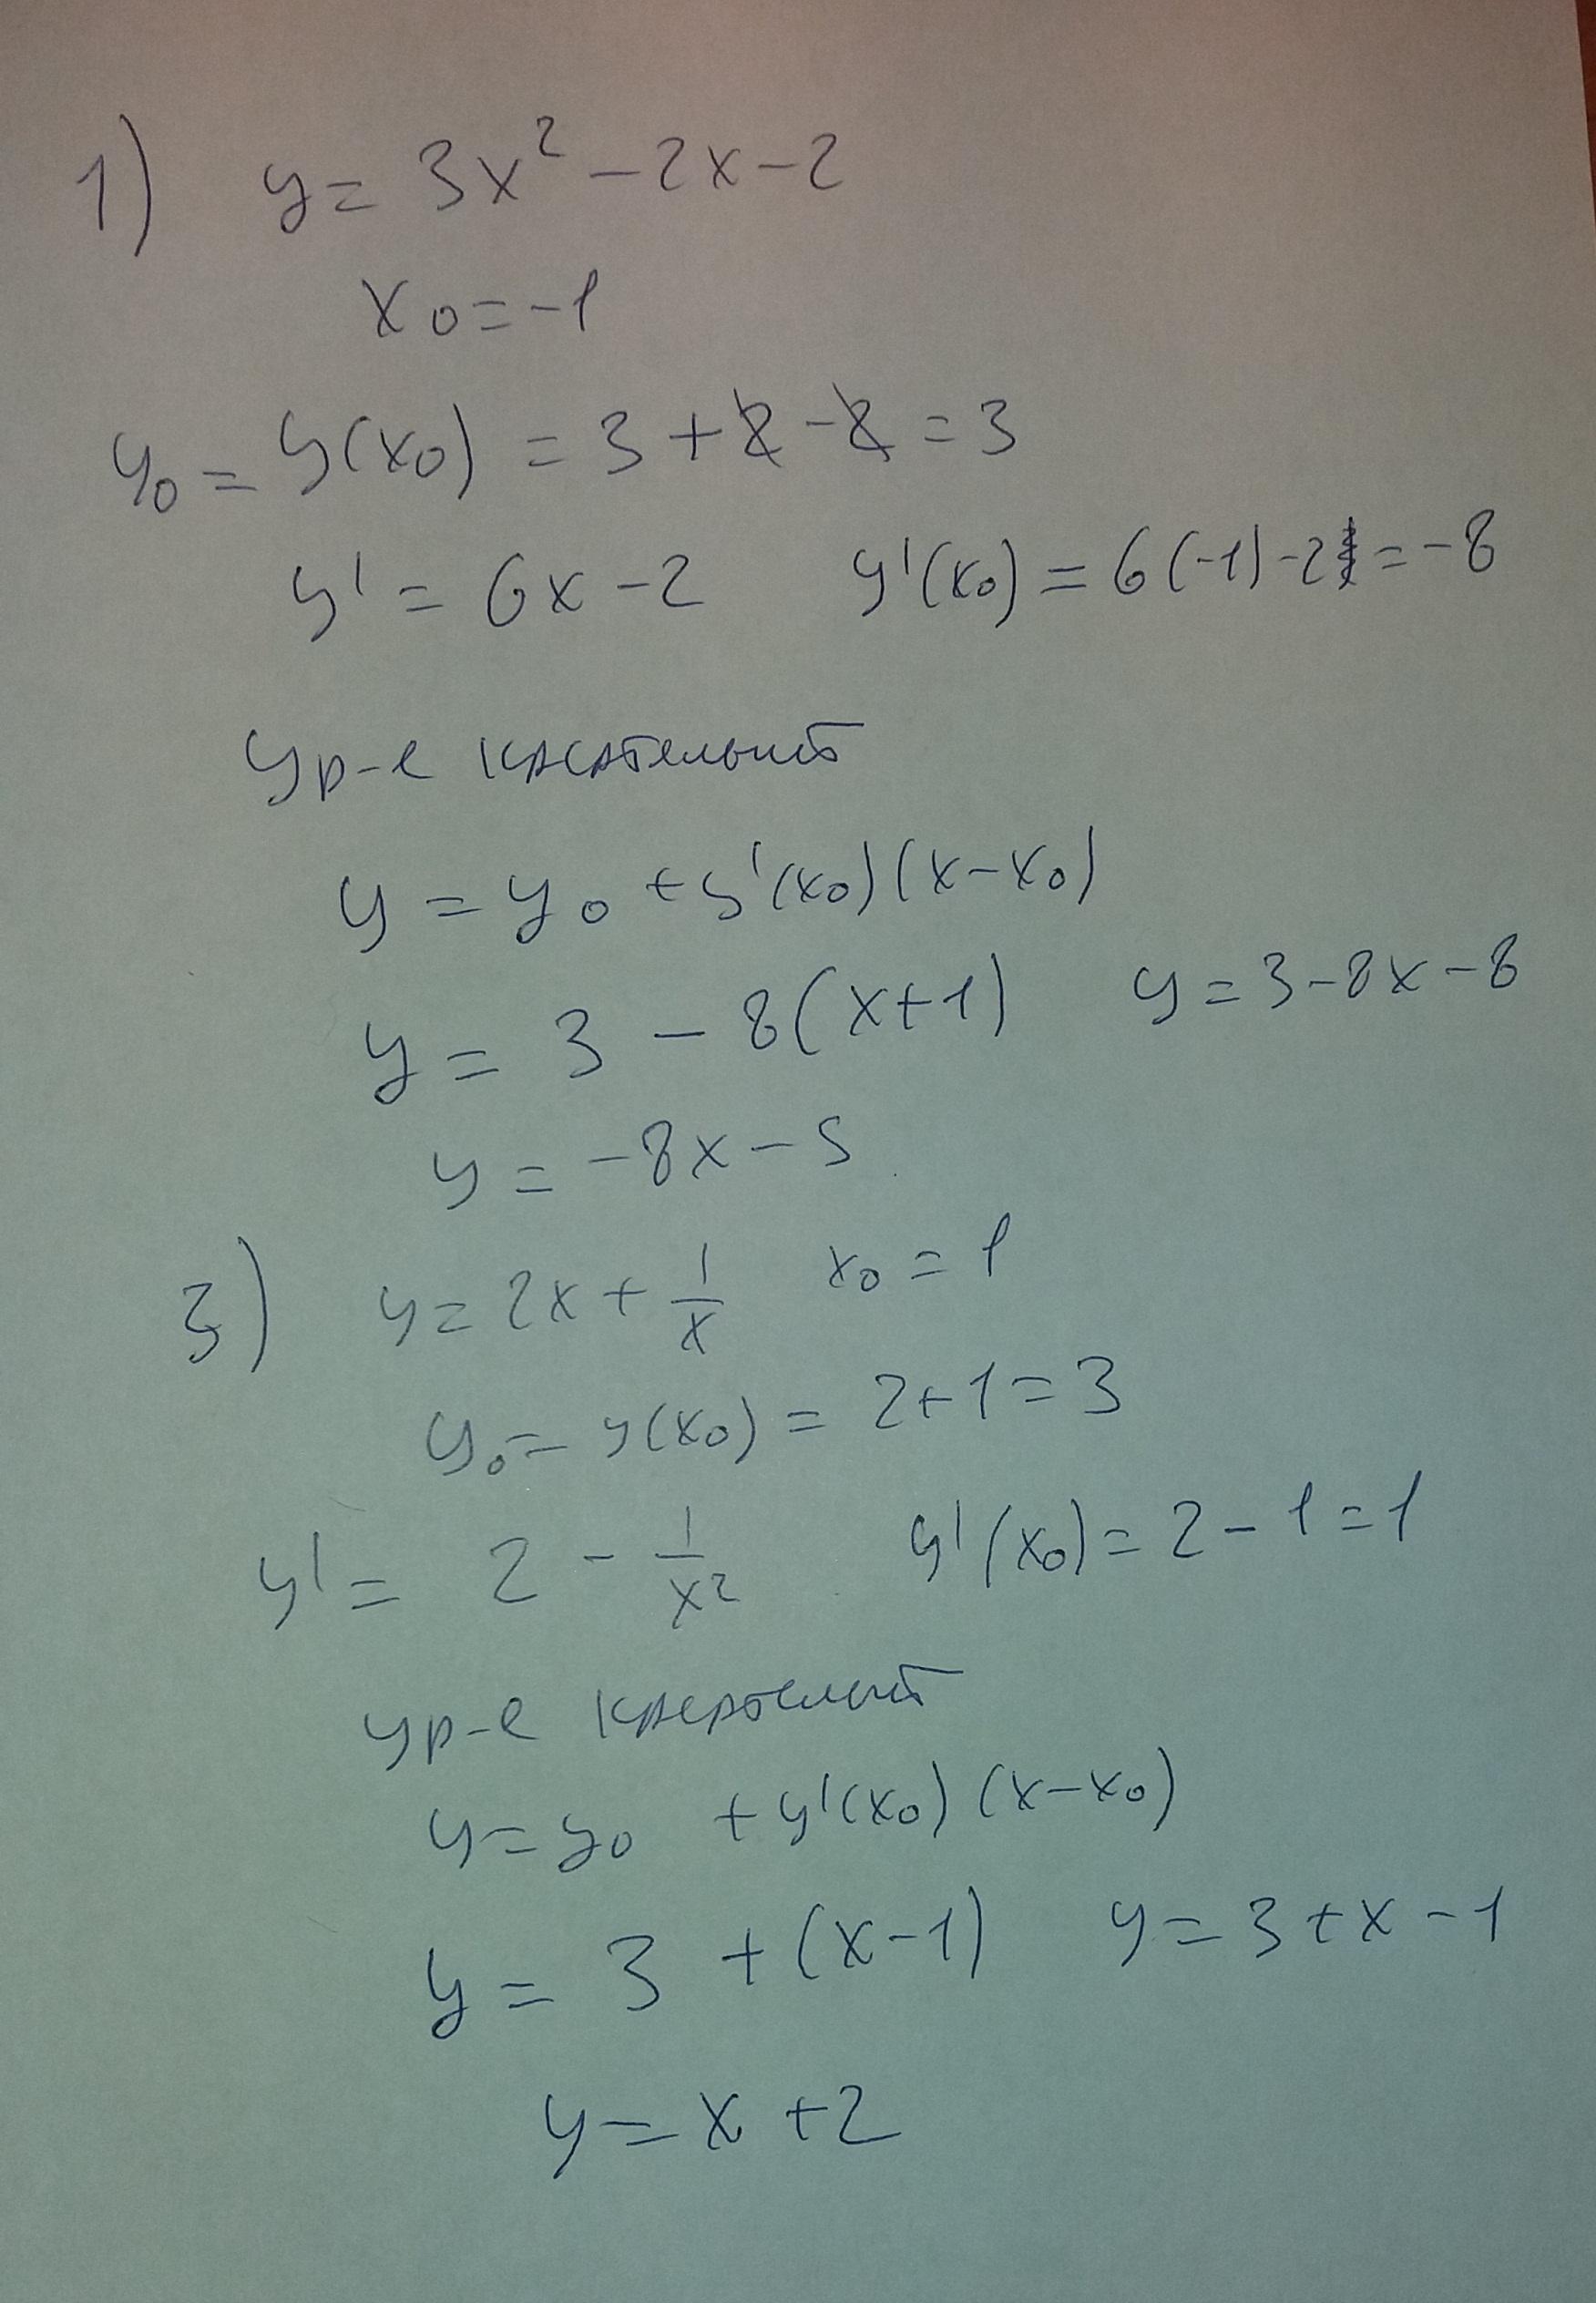 1) y = 3x² - 2x - 2
x₀ = -1
y₀ = y(x₀) = 3 + 2 - 2 = 3
y' = 6x - 2 y'(x₀) = 6(-1) - 2 = -8
Ур-е касательной
y = y₀ + y'(x₀)(x - x₀)
y = 3 - 8(x+1) y = 3 - 8x - 8
y = -8x - 5
3) y = 2x + 1/x x₀ = 1
y₀ = y(x₀) = 2 + 1 = 3
y' = 2 - 1/x² y'(x₀) = 2 - 1 = 1
ур-е касательной
y = y₀ + y'(x₀)(x - x₀)
y = 3 + (x - 1) y = 3 + x - 1
y = x + 2